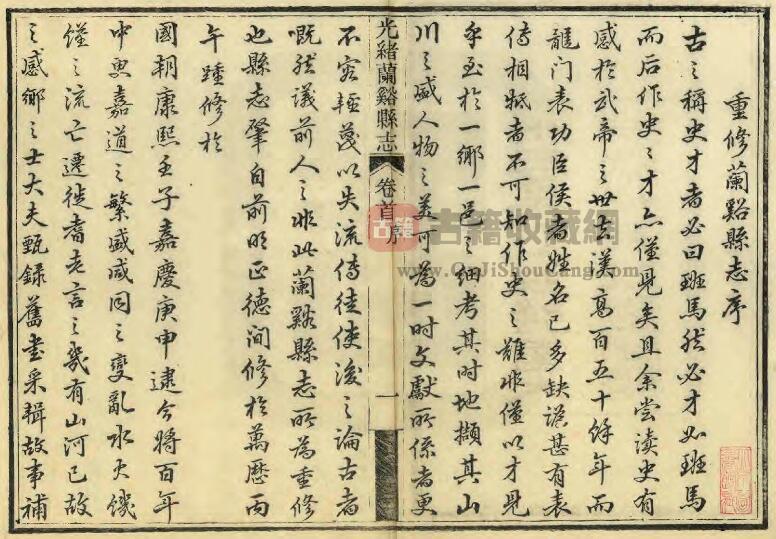 重修蘭谿縣志序
古之稱史才者必曰班馬然必才如班馬
而后作史〻才亦僅見矣且余尝读史有
感於武帝之世去漢高百五十餘年而
龍门表功臣侯者姓名已多缺譌甚有表
傳相牴者不可知作史之難非僅以才見
乎至於一鄉一邑之細考其时地擷其山
川之盛人物之美可為一时文獻所係者更
光緒蘭谿縣志 卷首 序 一
不容輕蔑以失流傳徒使後之論古者
慨然議前人之非此蘭谿縣志所為重修
也縣志肇自前明正德间修於萬歷丙
午踵修於
國朝康熙壬子嘉慶庚申逮今將百年
中更嘉道之繁盛咸同之變亂水火饑
饉之流亡遷徙耆老言之幾有山河已故
之感鄉之士大夫甄錄舊書采輯故事補
古籍 古籍收藏網
www.GuJiShouCang.com